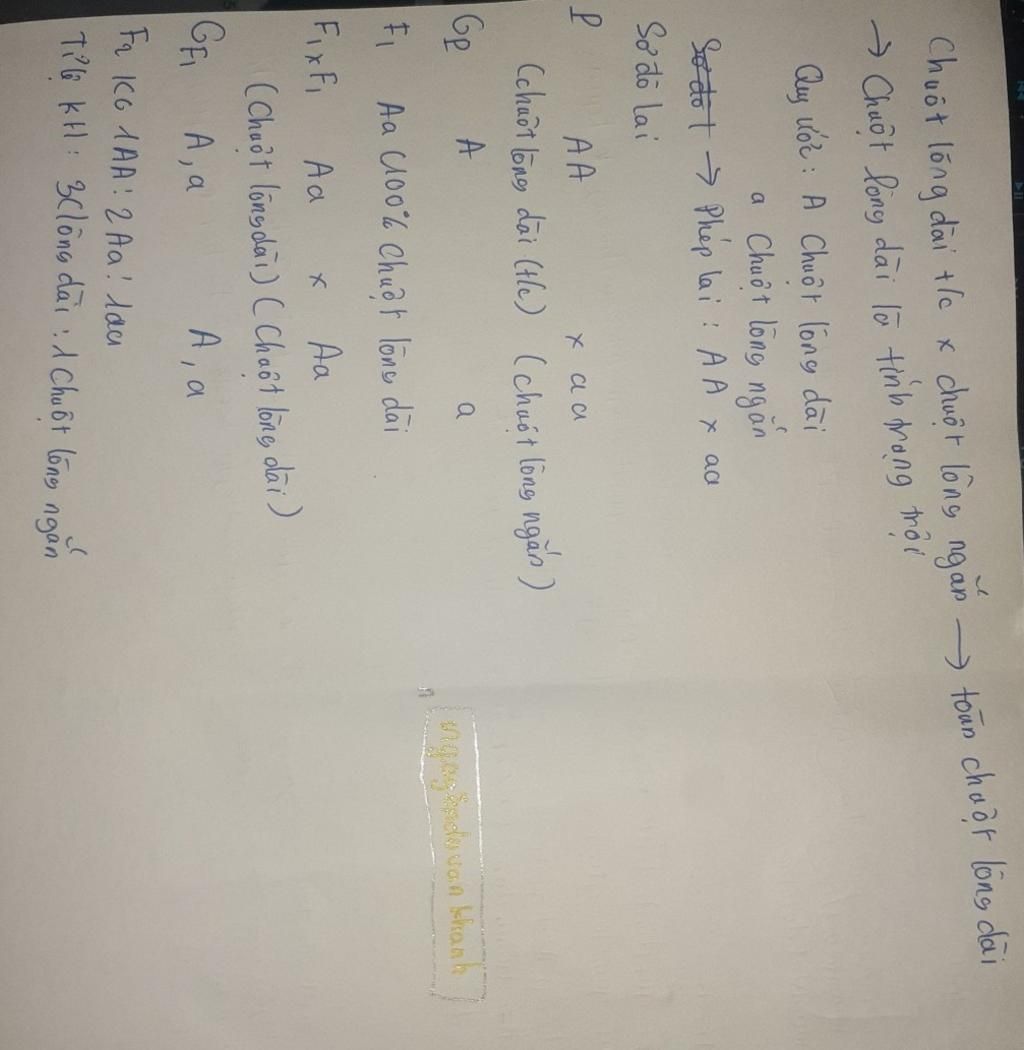 Chuột lông dài t/c x chuột lông ngắn → toàn chuột lông dài
→ Chuột lông dài là tính trạng trội
Quy ước: A Chuột lông dài
a Chuột lông ngắn
Sơ đồ l → Phép lai : AA x aa
Sơ đồ lai
P AA x aa
(chuột lông dài (t/c) (chuột lông ngắn)
GP A a
F1 Aa (100% Chuột lông dài
F1 x F1 Aa x Aa
(Chuột lông dài) (Chuột lông dài)
GF1 A, a A, a
F2 KG 1AA: 2Aa: 1aa
Tỉ lệ KH: 3(lông dài : 1 Chuột lông ngắn
n